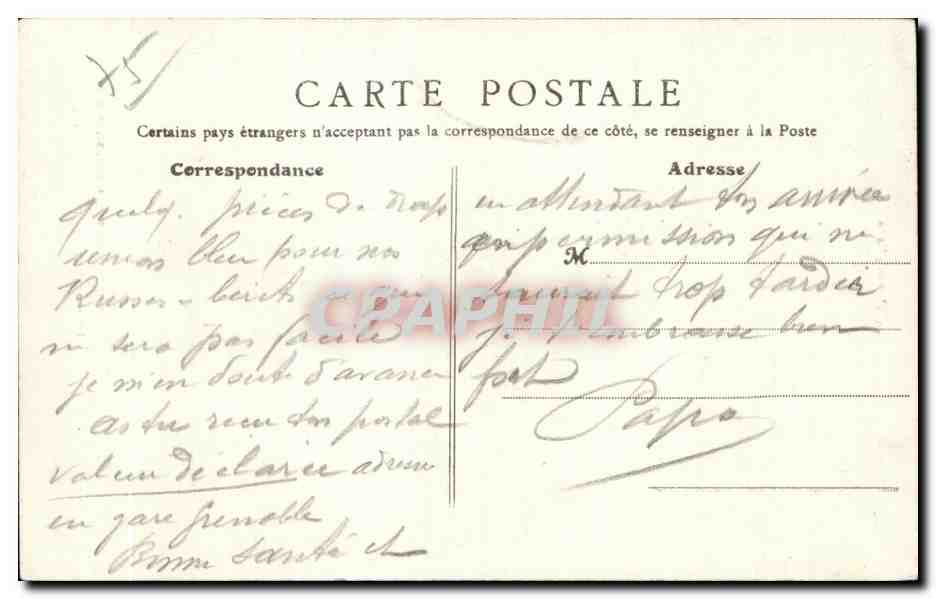 75
CARTE POSTALE
Certains pays étrangers n'acceptant pas la correspondance de ce côté, se renseigner à la Poste
Correspondance
quelq. pièces de drap
bleu pour nos
Russes
ne sera pas facile
je m'en doute d'avance
as tu reçu ton postal
valeur déclarée adressé
en gare Grenoble
Bonne santé et
Adresse
en attendant ton arrivée
en permission qui ne
M
saurait trop tarder
je t'embrasse bien
fort
Papa
CPAPHIL